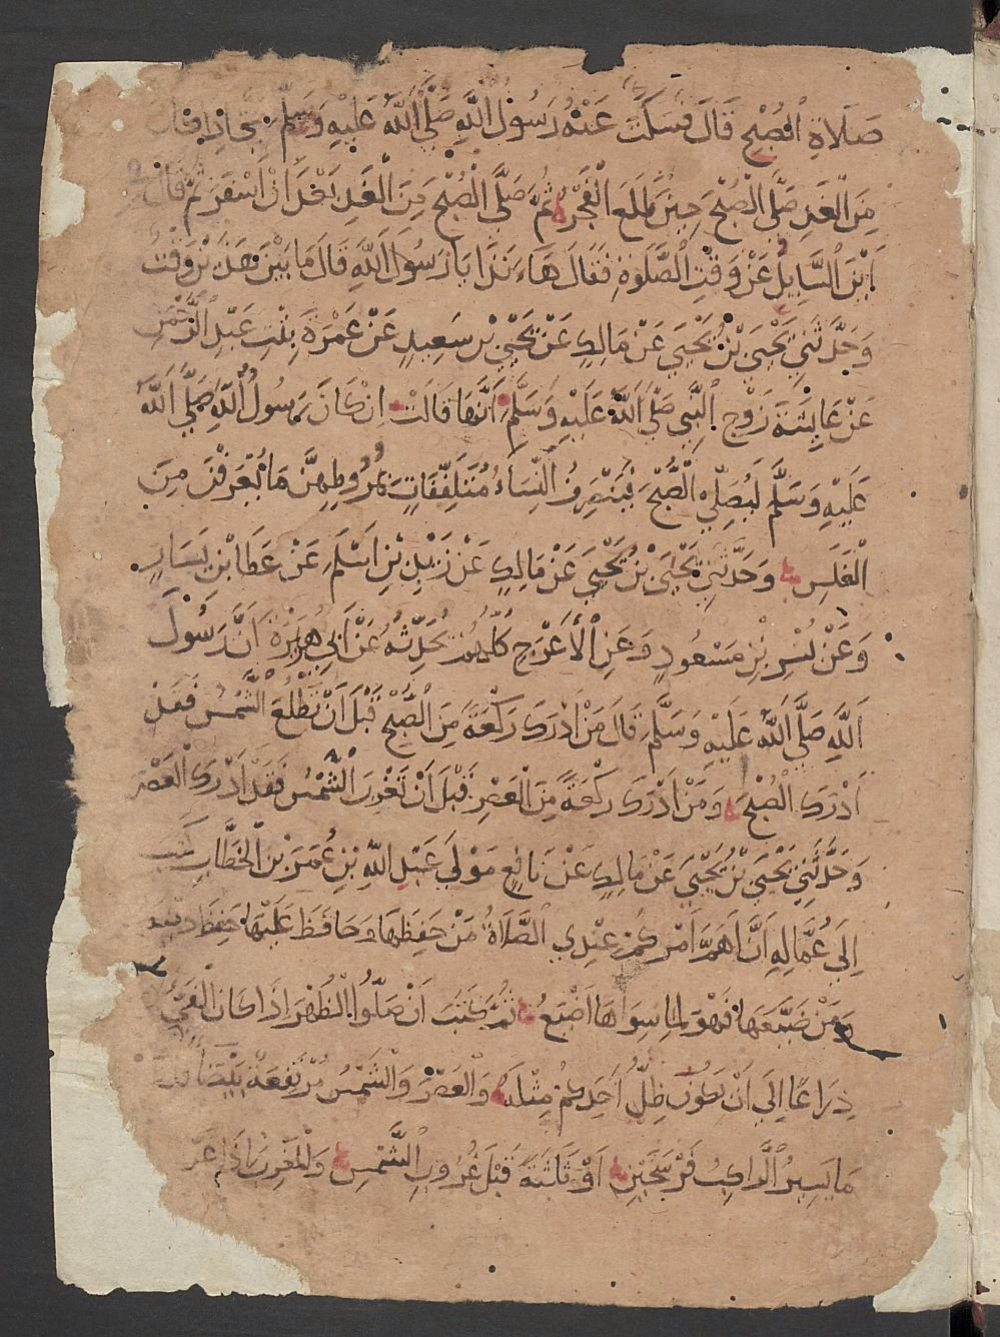 صَلَاةِ الْصُبْحِ قَالَ فَسَكَتَ عَنْهُ رَسُولُ اللَّهِ صَلَّى اللَّهُ عَلَيْهِ وَسَلَّمَ
مِنَ الْغَدِ صَلَّى الْصُبْحَ حِينَ طَلَعَ الْفَجْرُ ثُمَّ صَلَّى الْصُبْحَ مِنَ الْغَدِ بَعْدَ اَنْ اَسْفَرَ ثُمَّ قَالَ
اَيْنَ السَّايِلُ عَنْ وَقْتِ الصَّلَوةِ فَقَالَ هَاءَ نَذَا يَا رَسُولَ اللَّهِ قَالَ مَا بَيْنَ هَذَيْنِ وَقْتٌ
وَحَدَّثَنِي يَحْيَى بْنُ يَحْيَى عَنْ مَالِكٍ عَنْ يَحْيَى بْنِ سَعِيدٍ عَنْ عَمْرَةَ بِنْتِ عَبْدِ الرَّحْمَنِ
عَنْ عَايِشَةَ زَوْجِ النَّبِي صَلَّى اللَّهُ عَلَيْهِ وَسَلَّمَ اَنَّهَا قَالَتْ اِنْ كَانَ رَسُولُ اللَّهِ صَلَّى اللَّهُ
عَلَيْهِ وَسَلَّمَ لَيُصَلِّي الصُّبْحَ فَيَنْصَرِفُ النِّسَاءُ مُتَلَفِّفَاتٍ بِمُرُوطِهِنَّ مَا يُعْرَفْنَ مِنَ
الْغَلَسِ وَحَدَّثَنِي يَحْيَى بْنُ يَحْيَى عَنْ مَالِكٍ عَنْ زَيْدِ بْنِ اَسْلَمَ عَنْ عَطَا بْنِ يَسَارٍ
وَعَنْ بُسْرِ بْنِ مَسْعُودٍ وَعَنِ الْأَعْرَجِ كُلُّهُمْ يُحَدِّثُهُ عَنْ اَبِي هُرَيْرَةَ اَنَّ رَسُولَ
اللَّهِ صَلَّى اللَّهُ عَلَيْهِ وَسَلَّمَ قَالَ مَنْ اَدْرَكَ رَكْعَةً مِنَ الصُّبْحِ قَبْلَ اَنْ تَطْلُعَ الْشَّمْسُ فَقَدْ
اَدْرَكَ الْصُبْحَ وَمَنْ اَدْرَكَ رَكْعَةً مِنَ الْعَصْرِ قَبْلَ اَنْ تَغْرُبَ الْشَّمْسُ فَقَدْ اَدْرَكَ الْعَصْرَ
وَحَدَّثَنِي يَحْيَى بْنُ يَحْيَى عَنْ مَالِكٍ عَنْ نَافِعٍ مَوْلَى عَبْدِ اللَّهِ بْنِ عُمَرَ بْنِ الْخَطَّابِ كَتَبَ
اِلَى عُمَّالِهِ اَنَّ اَهَمَّ اَمْرِكُمْ عِنْدِي الصَّلَاةُ مَنْ حَفِظَهَا وَحَافَظَ عَلَيْهَا حَفِظَ دِينَهُ
وَمَنْ ضَيَّعَهَا فَهْوَ لِمَا سِوَاهَا اَضْيَعُ ثُمَّ كَتَبَ اَنْ صَلُّوا الْظُهْرَ اِذَا كَانَ الْفَيْءُ
ذِرَاعًا اِلَى اَنْ يَكُونَ ظِلُّ اَحَدِكُمْ مِثْلَهُ وَالْعَصْرَ وَالْشَمْسُ مُرْتَفِعَةٌ بَيْضَا
مَا يَسِيرُ الْرَّاكِبُ فَرْسَخَيْنِ اَوْ ثَلَثَةً قَبْلَ غُرُوبِ الْشَّمْسِ وَالْمَغْرِبَ اِذَا